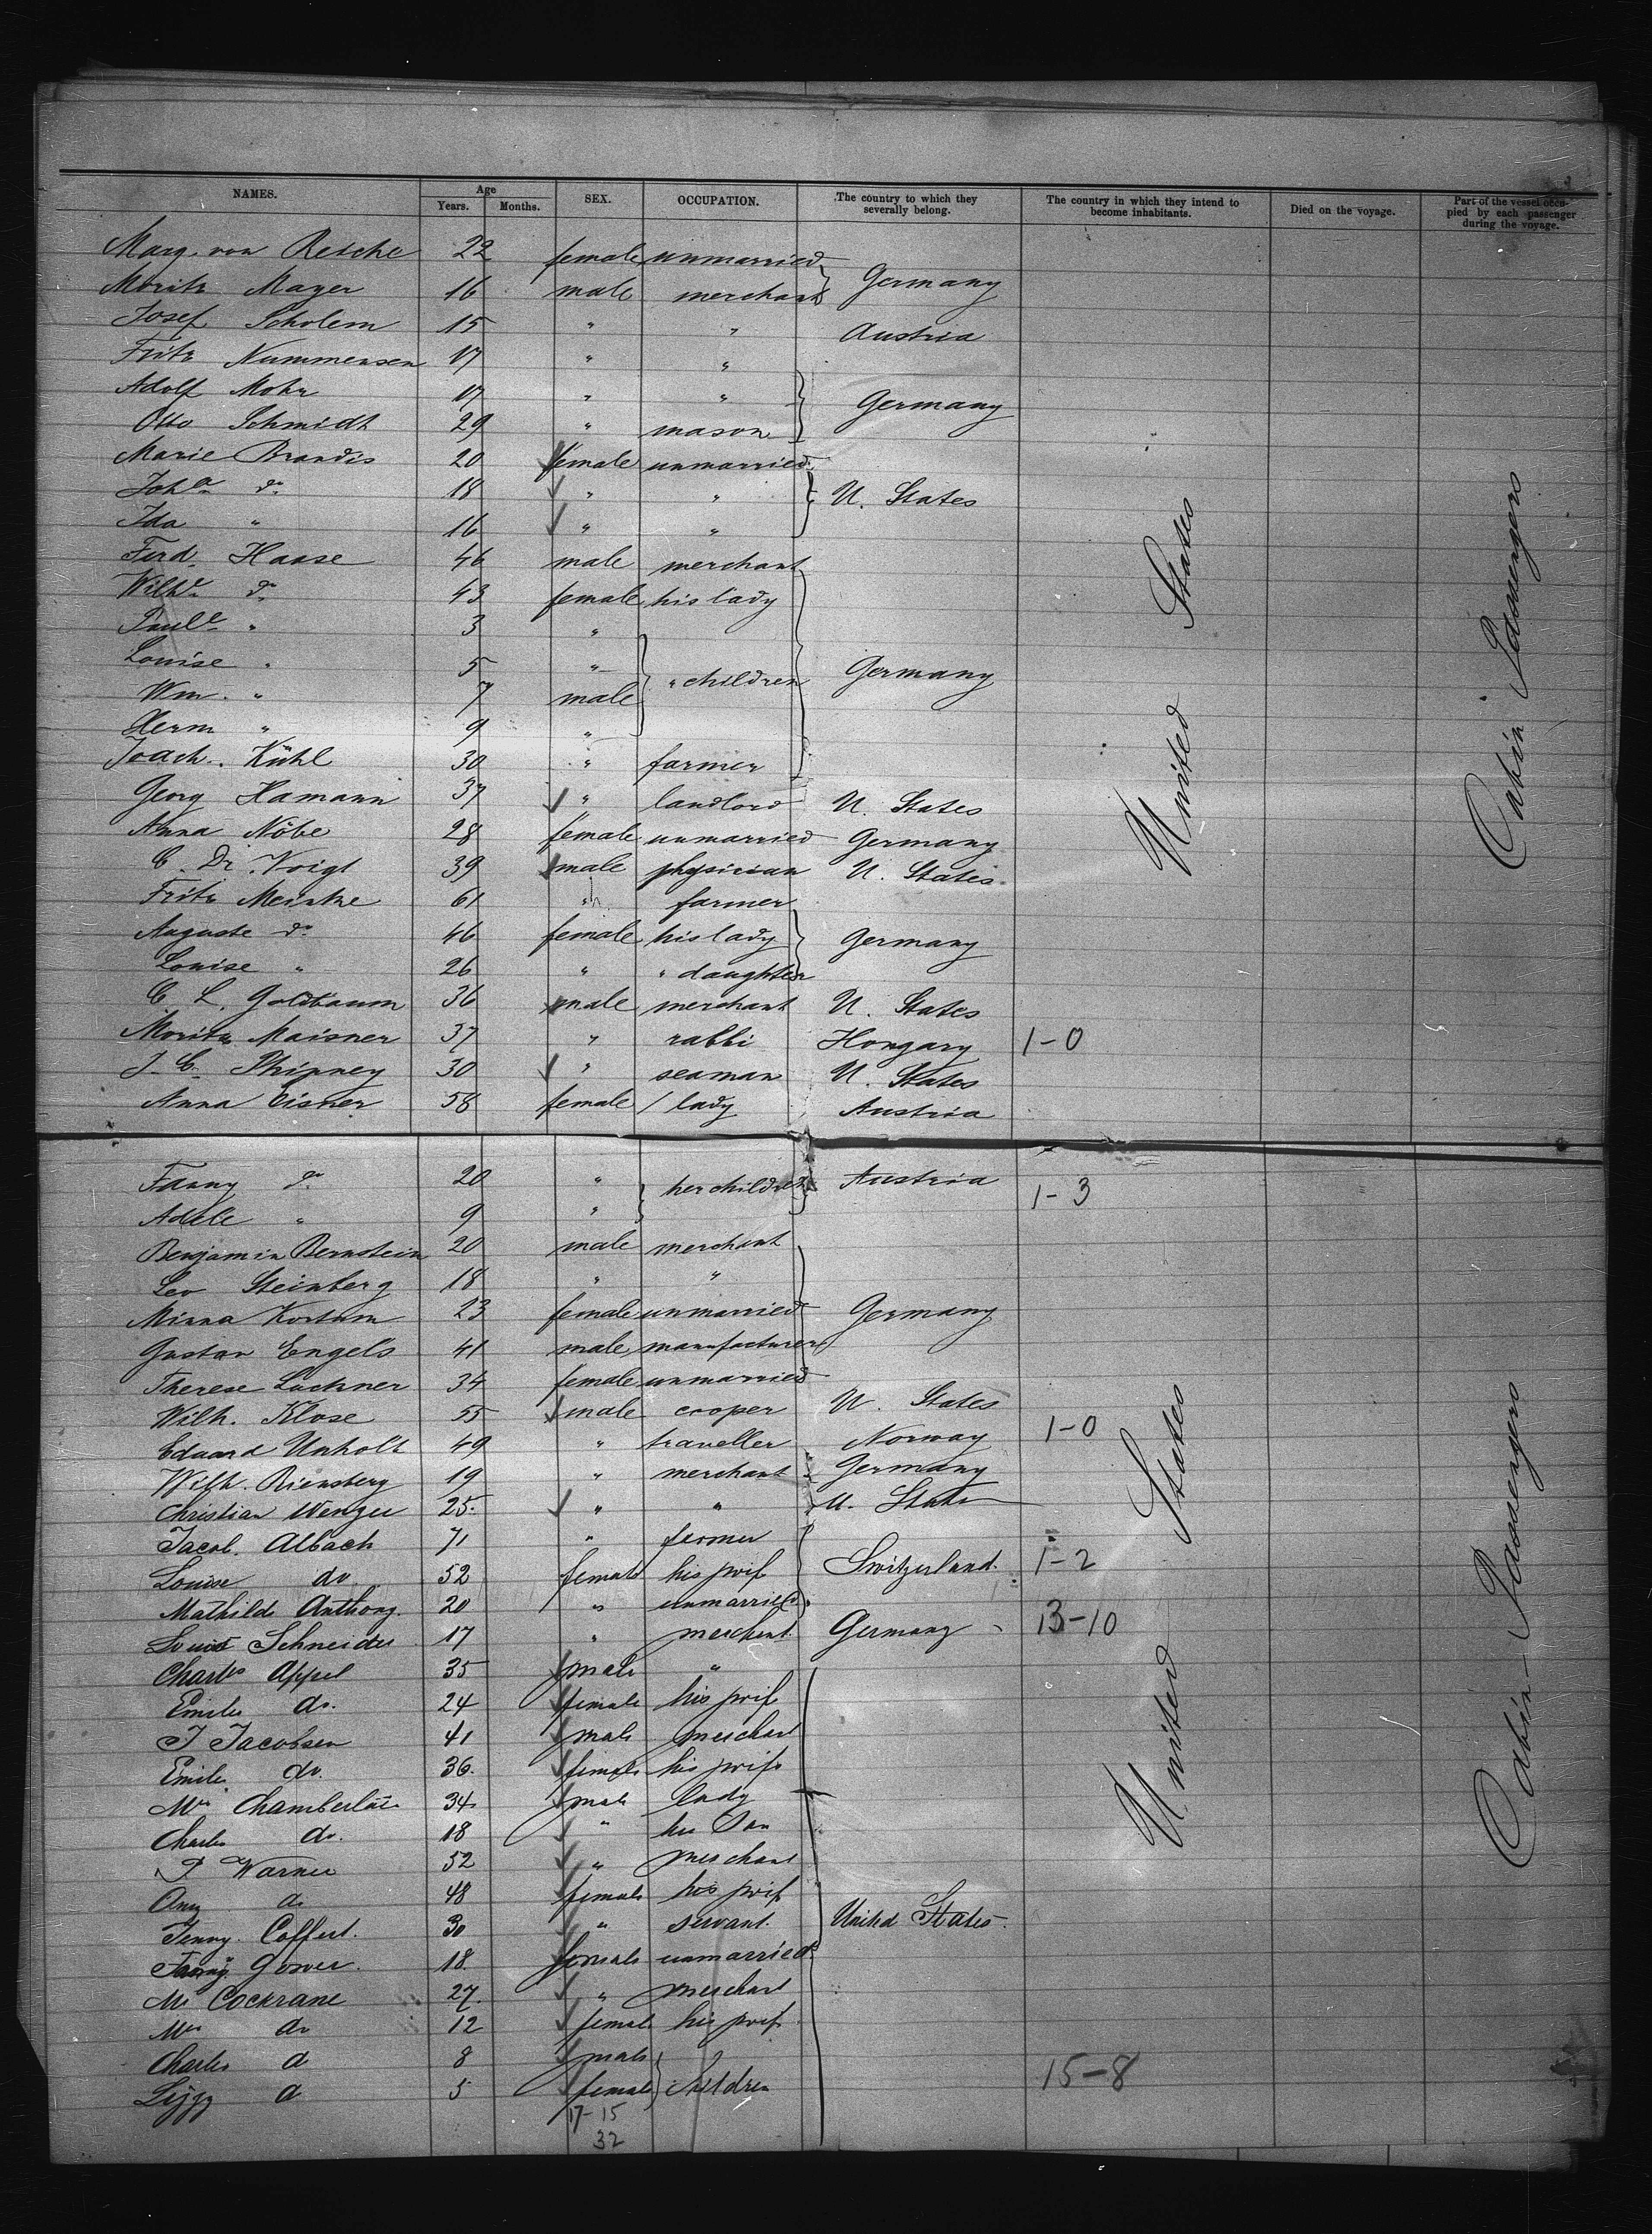 NAMES. Age Years. Months. SEX. OCCUPATION. The country to which they severally belong. The country in which they intend to become inhabitants. Died on the voyage. Part of the vessel occupied by each passenger during the voyage.
Marg. von Resche 22 female unmarried
Moritz Mayer 16 male merchant Germany
Josef Scholem 15 " " Austria
Fritz Nummensen 17 " "
Adolf Mohr 17 " " Germany
Otto Schmidt 29 " mason
Marie Brandis 20 female unmarried
Joha. do. 18 " " U. States
Ida " 16 " "
Ferd. Haase 46 male merchant
Wilhe. do. 43 female his lady
Paule. " 3 "
Louise " 5 " " children Germany
Wm. " 7 male
Herm " 9 "
Joach. Kühl 30 " farmer
Georg Hamann 37 " landlord U. States
Anna Nöbe 28 female unmarried Germany
C. Dr. Voigt 39 male physician U. States
Fritz Meinke 61 " farmer
Auguste do. 46 female his lady Germany
Louise " 26 " " daughter
C. L. Goldbaum 36 male merchant U. States
Moritz Maisner 37 " rabbi Hongary 1-0
J. C. Phinney 30 " seaman U. States
Anna Eisner 58 female / lady Austria
United States
Cabin Passengers
Fanny do. 20 " her children Austria 1-3
Adele " 9 "
Benjamin Bernstein 20 male merchant
Leo Steinberg 18 " "
Minna Kortum 23 female unmarried Germany
Gustav Engels 41 male manufacturer
Therese Lackner 34 female unmarried
Wilh. Klose 55 male cooper U. States
Eduard Unholt 49 " traveller Norway 1-0
Wilh. Riensberg 19 " merchant Germany
Christian Wenger 25 " " U. States
Jacob. Albach 71 " farmer
Louise do 52 female his wife Switzerland. 1-2
Mathilde Anthony. 20 " unmarried
Louis Schneider 17 " merchant. Germany 13-10
Charles Appel 35 male "
Emilie do. 24 female his wife
J Jacobsen 41 male merchant
Emilie do. 36. female his wife
Mrs Chamberlain 34 male lady
Charles do. 18 " her Son
P Warner 52 " merchant
Amy do 48 female his wife
Jenny. Coffert. 30 " servant. United States.
Fanny Gower. 18. female unmarried
Mr Cockrane 27. " merchant
Mrs do 12 female his wife
Charles d 8 male
Lizzy d 5 female children 15-8
17-15
32
United States
Cabin Passengers